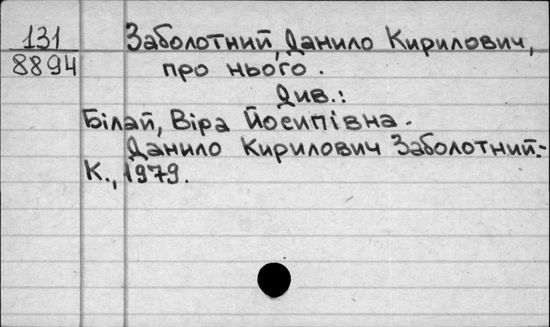 131
8894
Заболотний, Данило Кирилович,
про нього.
Див.:
Білай, Віра Йосипівна.
Данило Кирилович Заболотний.-
К., 1979.